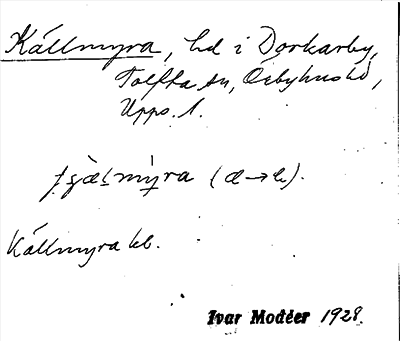 Källmyra, ld i Dorkarby,
Tolfta sn, Örbyhus hd,
Upps. l.
(æ→e).
Källmyra kb.
Ivar Modéer 1928.